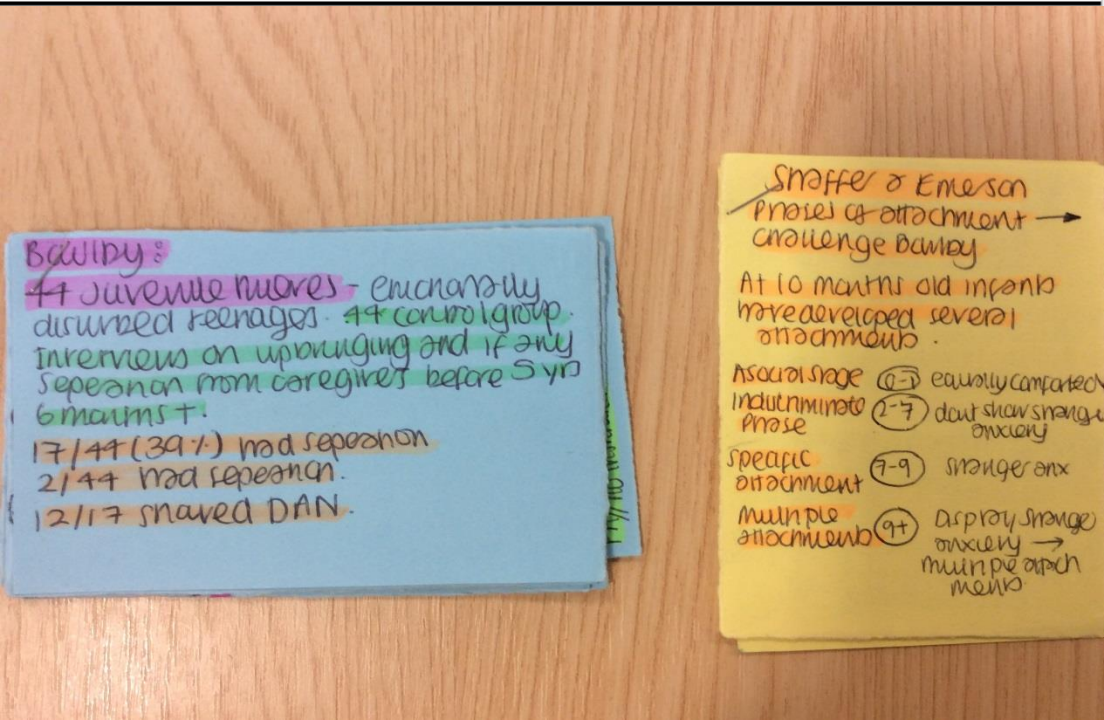 Bowlby:
44 Juvenile thieves - emotionally
disturbed teenages. 44 control group.
Interviews on upbringing and if any
seperation from caregivers before 5 yrs
6 months +.
17/44 (39%) had seperation
2/44 had seperation.
12/17 showed DAN.
Shaffer & Emerson
Phases of attachment →
challenge Bowlby
At 10 months old infants
have developed several
attachments.
Asocial stage 0-2 equally comforted
Indiscriminate 2-7 dont show strange
Phase anxiety
Specific
attachment 7-9 stranger anx
Multiple
attachments 9+ Display strange
anxiety →
multiple attach
ments